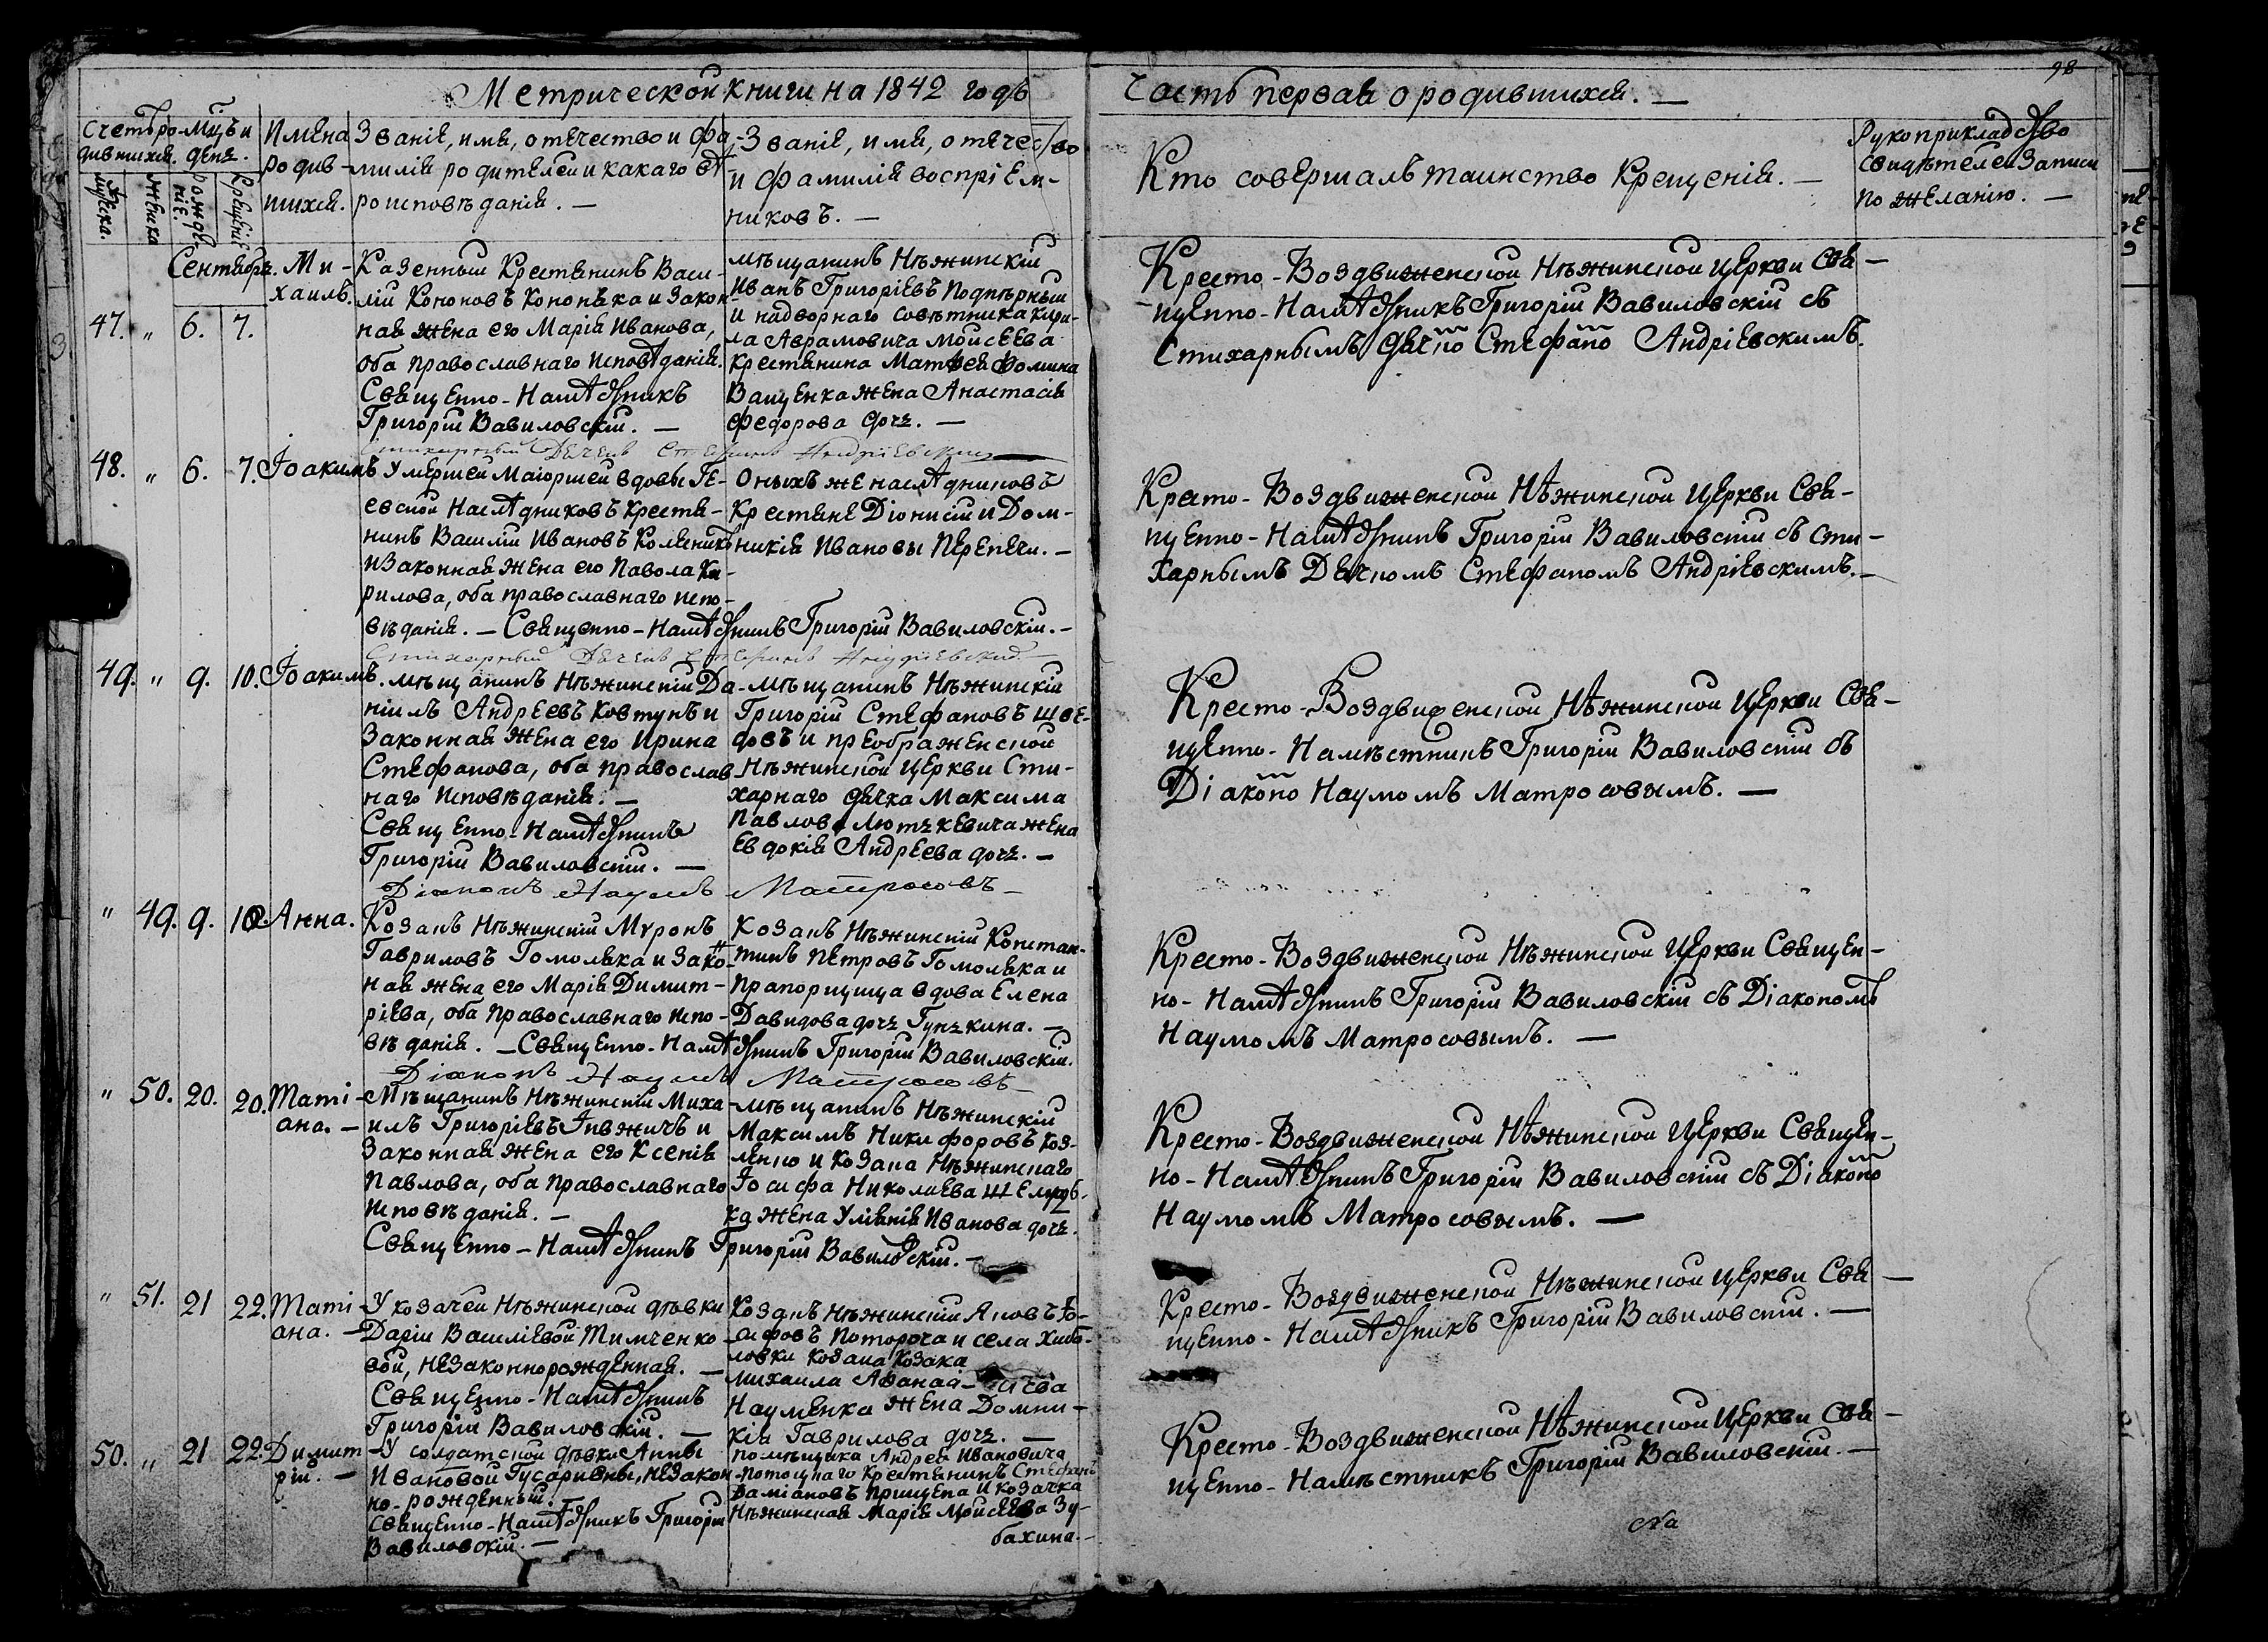 Метрической книги на 1842 годъ
Часть первая о родившихся. —
98
Счетъ ро-
дившихся.
Мцъ и
день.
Мужеска.
Женска
рожде-
ніе.
Крещеніе
Имена
родив-
шихся.
Званіе, имя, отечество и фа-
милія родителей и какаго вѣ-
роисповѣданія. —
Званіе, имя, отечество
и фамилія воспріем-
никовъ. —
Кто совершалъ таинство Крещенія. —
Рукоприкладство
свидѣтелей записи
по желанію. —
Сентябрь.
47. „ 6. 7.
Ми-
хаилъ.
Казенный Крестянинъ Васи-
лій Кононовъ Кононѣка и закон-
ная жена его Марія Иванова,
оба православнаго исповѣданія.
Священно-Намѣстникъ
Григорій Вавиловскій. —
Стихарный Дячекъ Стефанъ Андріевскій
мѣщанинъ Нѣжинскій
Иванъ Григоріевъ Подпѣрный
и надворнаго совѣтника Кири-
ла Аврамовича Моисеева
крестянина Матѳея Фомина
Ващенка жена Анастасія
Федорова дочь. —
Кресто-Воздвиженской Нѣжинской Церкви Свя-
щенно-Намѣстникъ Григорій Вавиловскій съ
Стихарнымъ Дячко Стефано Андріевскимъ.
48. „ 6. 7. Іоакимъ
Умершей Маіоршей вдовы Ге-
евской Наслѣдниковъ Крестя-
нинъ Василій Ивановъ Колѣсникъ
и законная жена его Павола Ки-
рилова, оба православнаго испо-
вѣданія. — Священно-Намѣстникъ Григорій Вавиловскій. —
Стихарный Дячекъ Стефанъ Андріевскій
Оныхъ же наслѣдниковъ
Крестяне Діонисій и Дом-
никія Ивановы Перепечи. —
Кресто-Воздвиженской Нѣжинской Церкви Свя-
щенно-Намѣстникъ Григорій Вавиловскій съ Сти-
харнымъ Дячкомъ Стефаномъ Андріевскимъ. —
49. „ 9. 10. Іоакимъ.
мѣщанинъ Нѣжинскій Да-
ніилъ Андреевъ Ковтунъ и
законная жена его Ирина
Стефанова, оба православ-
наго исповѣданія. —
Священно-Намѣстникъ
Григорій Вавиловскій. —
Діаконъ Наумъ Матросовъ —
мѣщанинъ Нѣжинскій
Григорій Стефановъ Шве-
довъ и преображенской
Нѣжинской Церкви Сти-
харнаго дячка Максима
Павлова Лютькевича жена
Евдокія Андреева дочь. —
Кресто-Воздвиженской Нѣжинской Церкви Свя-
щенно-Намѣстникъ Григорій Вавиловскій съ
Діаконо Наумомъ Матросовымъ. —
„ 49. 9. 10. Анна.
Козакъ Нѣжинскій Мѵронъ
Гавриловъ Гомоляка и закон-
ная жена его Марія Димит-
ріева, оба Православнаго испо-
вѣданія. — Священно-Намѣстникъ Григорій Вавиловскій.
Діаконъ Наумъ Матросовъ —
Козакъ Нѣжинскій Констан-
тинъ Петровъ Гомоляка и
Прапорщица вдова Елена
Давидова дочь Гунькина. —
Кресто-Воздвиженской Нѣжинской Церкви Священ-
но-Намѣстникъ Григорій Вавиловскій съ Діакономъ
Наумомъ Матросовымъ. —
„ 50. 20. 20. Таті-
ана. —
Мѣщанинъ Нѣжинскій Миха-
илъ Григоріевъ Інвжичъ и
законная жена его Ксенія
Павлова, оба православнаго
исповѣданія. —
Священно-Намѣстникъ Григорій Вавиловскій. —
мѣщанинъ Нѣжинскій
Максимъ Никифоровъ Коз-
ленко и козака Нѣжинскаго
Іосифа Николаева
жена Уліянія Иванова дочь.
Кресто-Воздвиженской Нѣжинской Церкви Священ-
но-Намѣстникъ Григорій Вавиловскій съ Діаконо
Наумомъ Матросовымъ. —
„ 51. 21 22. Таті-
ана. —
У козачей Нѣжинской дѣвки
Даріи Василіевой Тимченко-
вой, незаконнорожденная. —
Священно-Намѣстникъ
Григорій Вавиловскій. —
Козакъ Нѣжинскій Яковъ Іо-
сифовъ Потороча и села Хиба-
ловки козака Козака
Михаила Аѳанасіева
Науменка жена Домни-
кія Гаврилова дочь. —
Кресто-Воздвиженской Нѣжинской Церкви Свя-
щенно-Намѣстникъ Григорій Вавиловскій. —
50. „ 21 22. Димит-
рій. —
У солдатской дѣвки Анны
Ивановой Гусаривны, незакон-
но-рожденный. —
Священно-Намѣстникъ Григорій
Вавиловскій. —
помѣщика Андрея Ивановича
Потоцкаго Крестянинъ Стефанъ
Даміановъ Прищепа и козачка
Нѣжинская Марія Моисеева Зу-
бахина. —
Кресто-Воздвиженской Нѣжинской Церкви Свя-
щенно-Намѣстникъ Григорій Вавиловскій. —